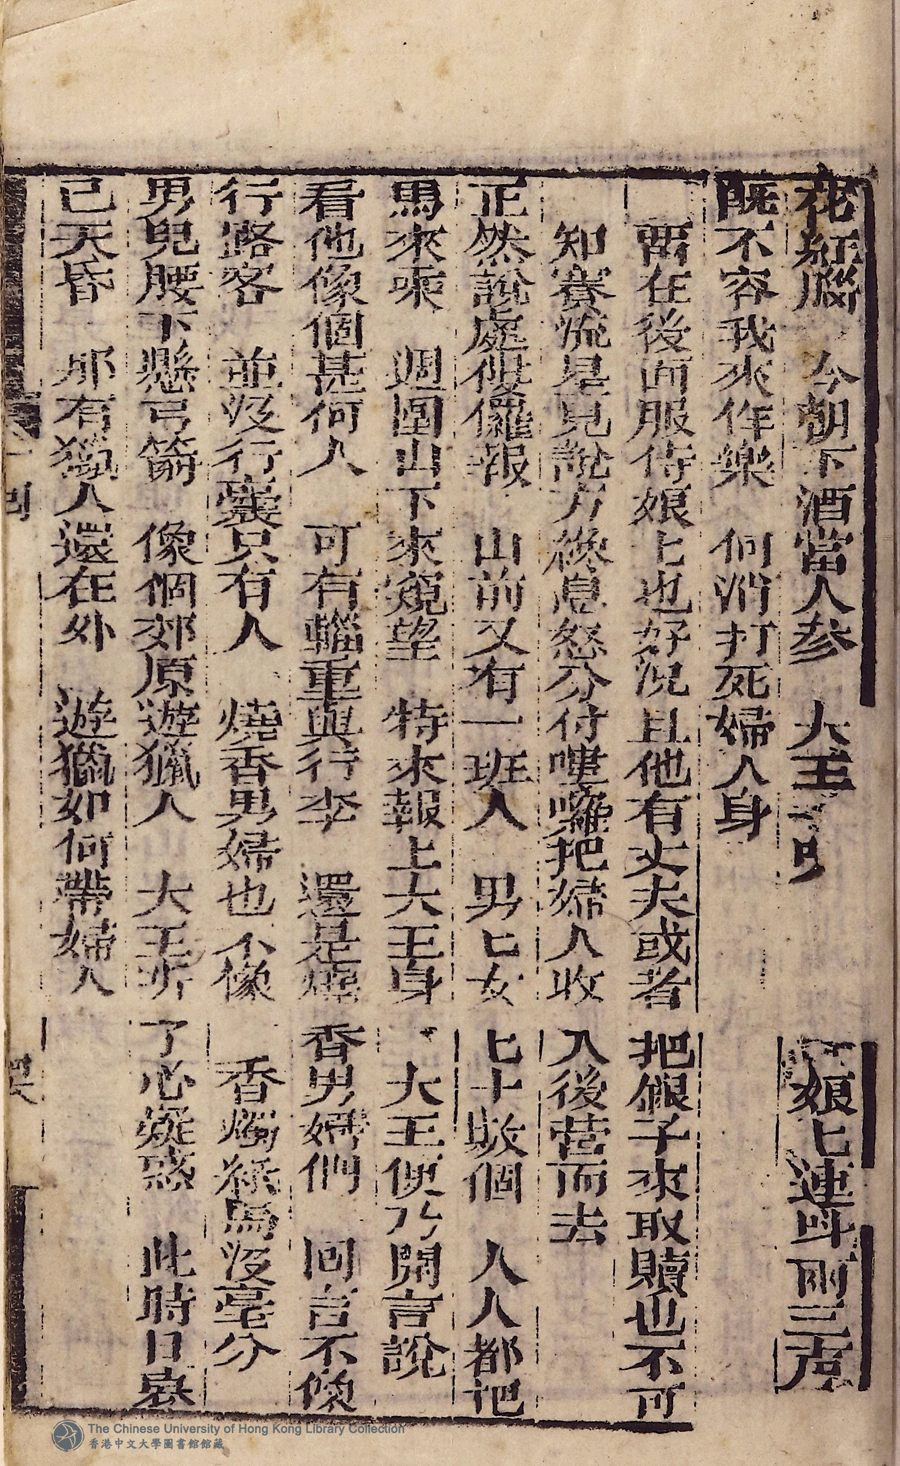 花紅腦 今朝下酒當人參 大王 娘匕連呌兩三声
旣不容我來作樂 何消打死婦人身
畱在後面服侍娘匕也好况且他有丈夫或者把銀子來取贖也不可
知賽流星見說方纔息怒分付嘍囉把婦人收入後營而去
正然說處僂儸報 山前又有一班人 男匕女匕十數個 人人都把
馬來乘 週圍山下來窺望 特來報上大王身 大王便乃開言說
看他像個甚何人 可有輜重與行李 還是燒香男婦們 回言不像
行路客 並沒行囊只有人 燒香男婦也不像 香燭紙馬沒毫分
男兒腰下懸弓箭 像個郊原遊獵人 大王听了心疑惑 此時日裏
已天昏 那有獵人還在外 遊獵如何帶婦人
回
The Chinese University of Hong Kong Library Collection
香港中文大學圖書館館藏